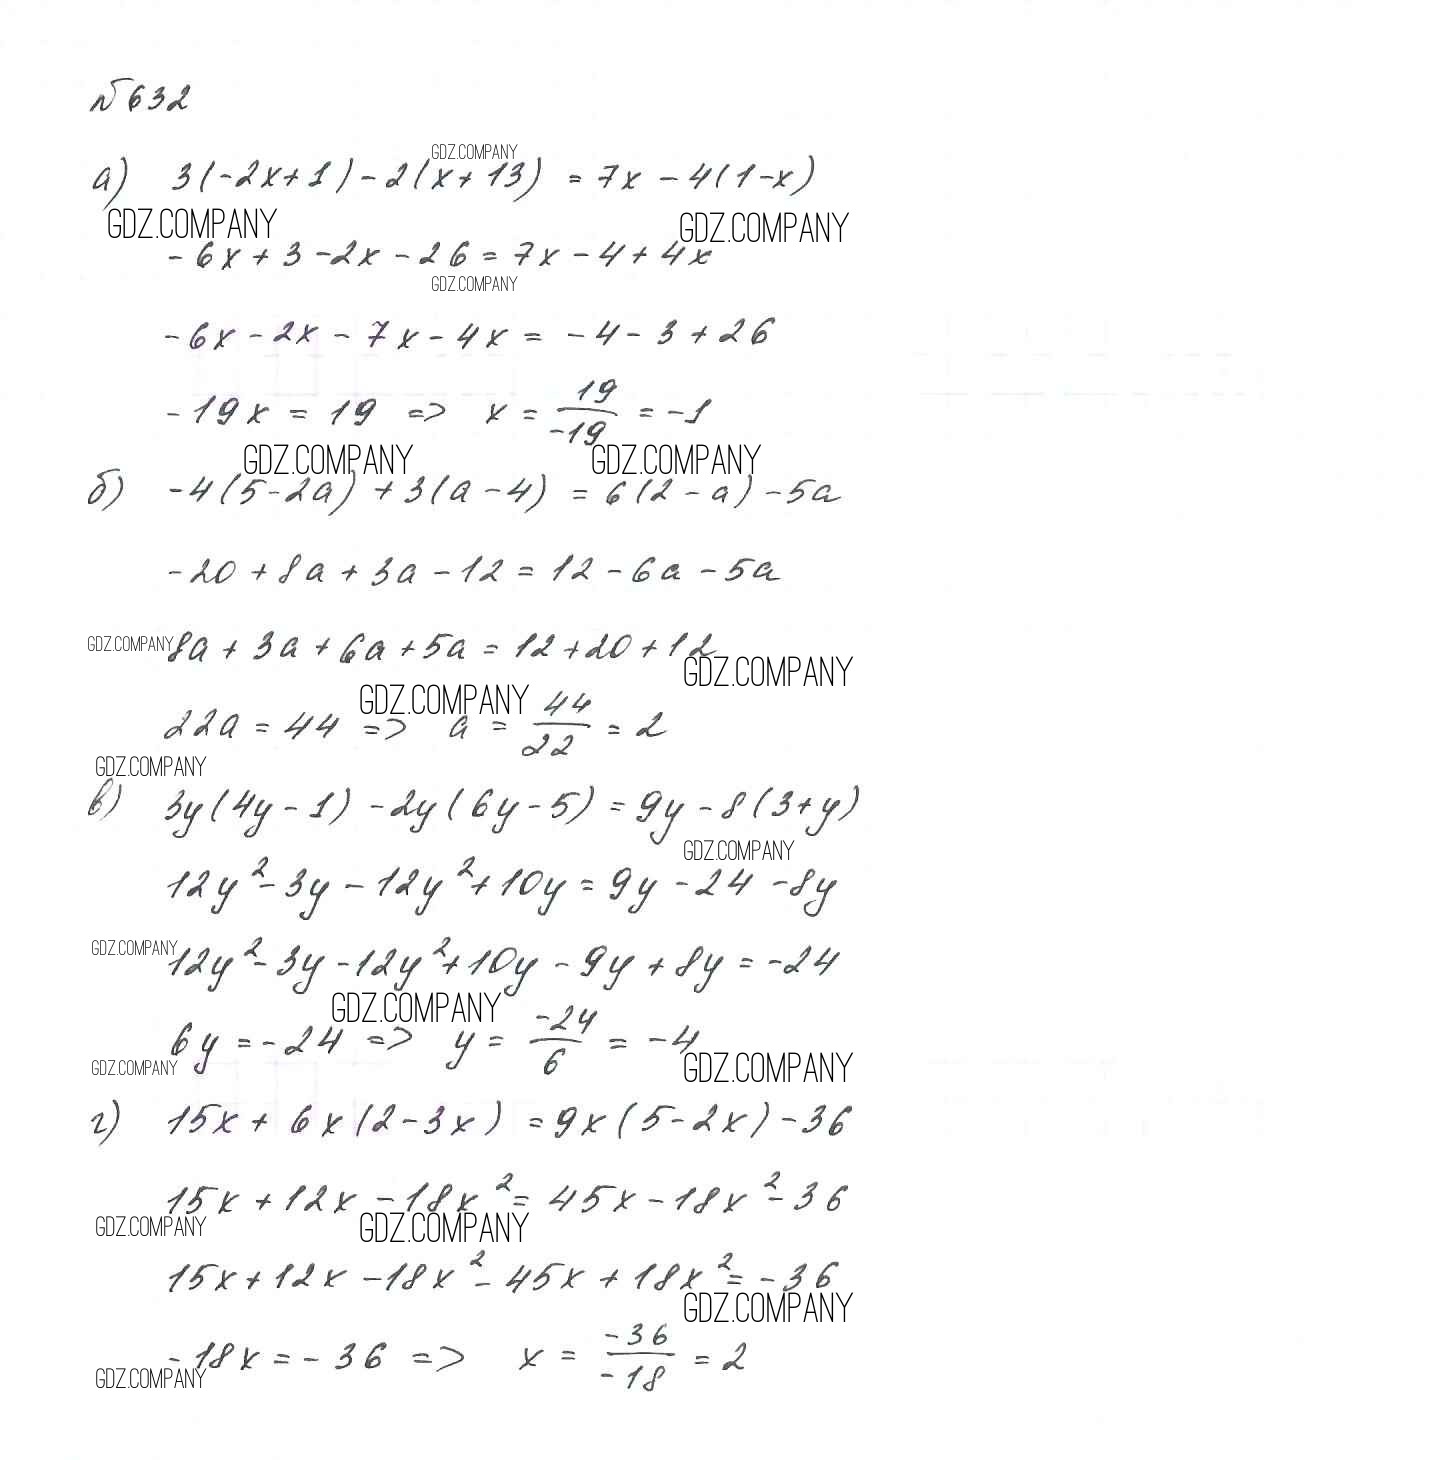 №632
GDZ.COMPANY
а) 3(-2x+1)-2(x+13) = 7x - 4(1-x)
GDZ.COMPANY GDZ.COMPANY
-6x+3-2x-26=7x-4+4x
GDZ.COMPANY
-6x-2x-7x-4x=-4-3+26
-19x = 19 => x = 19/-19 = -1
GDZ.COMPANY GDZ.COMPANY
б) -4(5-2a)+3(a-4) = 6(2-a)-5a
-20+8a+3a-12=12-6a-5a
GDZ.COMPANY 8a+3a+6a+5a=12+20+12
GDZ.COMPANY GDZ.COMPANY
22a=44 => a = 44/22 = 2
GDZ.COMPANY
в) 3y(4y-1)-2y(6y-5)=9y-8(3+y)
GDZ.COMPANY
12y²-3y-12y²+10y=9y-24-8y
GDZ.COMPANY 12y²-3y-12y²+10y-9y+8y=-24
GDZ.COMPANY
6y=-24 => y = -24/6 = -4
GDZ.COMPANY GDZ.COMPANY
г) 15x+6x(2-3x)=9x(5-2x)-36
15x+12x-18x²=45x-18x²-36
GDZ.COMPANY GDZ.COMPANY
15x+12x-18x²-45x+18x²=-36
GDZ.COMPANY
-18x=-36 => x = -36/-18 = 2
GDZ.COMPANY